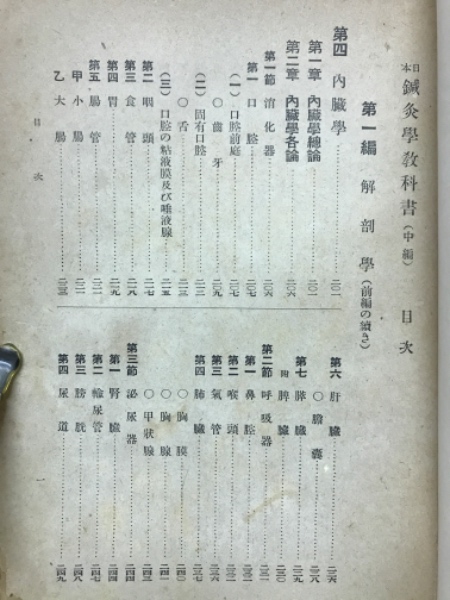 日本鍼灸學教科書(中編) 目次
第一編 解剖學(前編の續き)
第四 內臟學……二〇一
第一章 內臟學總論……二〇一
第二章 內臟學各論……二〇六
第一節 消化器……二〇六
第一 口腔……二〇七
(一)口腔前庭……二〇七
〇齒牙……二〇九
(二)固有口腔……二一二
〇舌……二一三
(三)口腔の粘液膜及び唾液腺……二一五
第二 咽頭……二一七
第三 食管……二一八
第四 胃……二一九
第五 腸管……二二一
甲 小腸……二二一
乙 大腸
目次
第六 肝臟
〇膽囊……二二八
第七 膵臟……二二九
附 脾臟
第二節 呼吸器
第一 鼻腔
第二 喉頭
第三 氣管……二三六
第四 肺臟……二三七
〇胸膜……二四〇
〇胸腺……二四一
〇甲狀腺……二四三
第三節 泌尿器……二四四
第一 腎臟……二四四
第二 輸尿管……二四七
第三 膀胱……二四八
第四 尿道……二四九
一